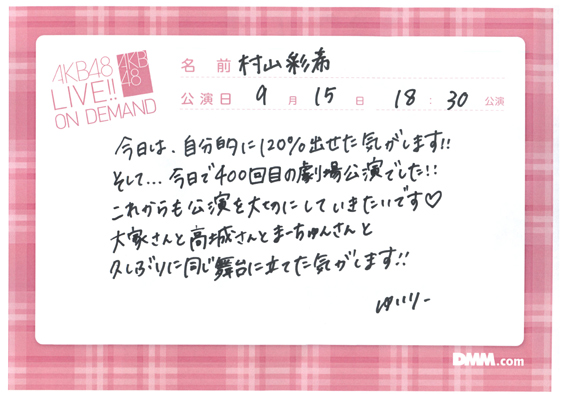 AKB48
LIVE!!
ON DEMAND
AKB
48
名 前 村山彩希
公演日 9 月 15 日 18 : 30 公演
今日は、自分的に120%出せた気がします!!
そして...今日で400回目の劇場公演でした!!
これからも公演を大切にしていきたいです♡
大家さんと高城さんとまーちゅんさんと
久しぶりに同じ舞台に立てた気がします!!
ゆいりー
DMM.com